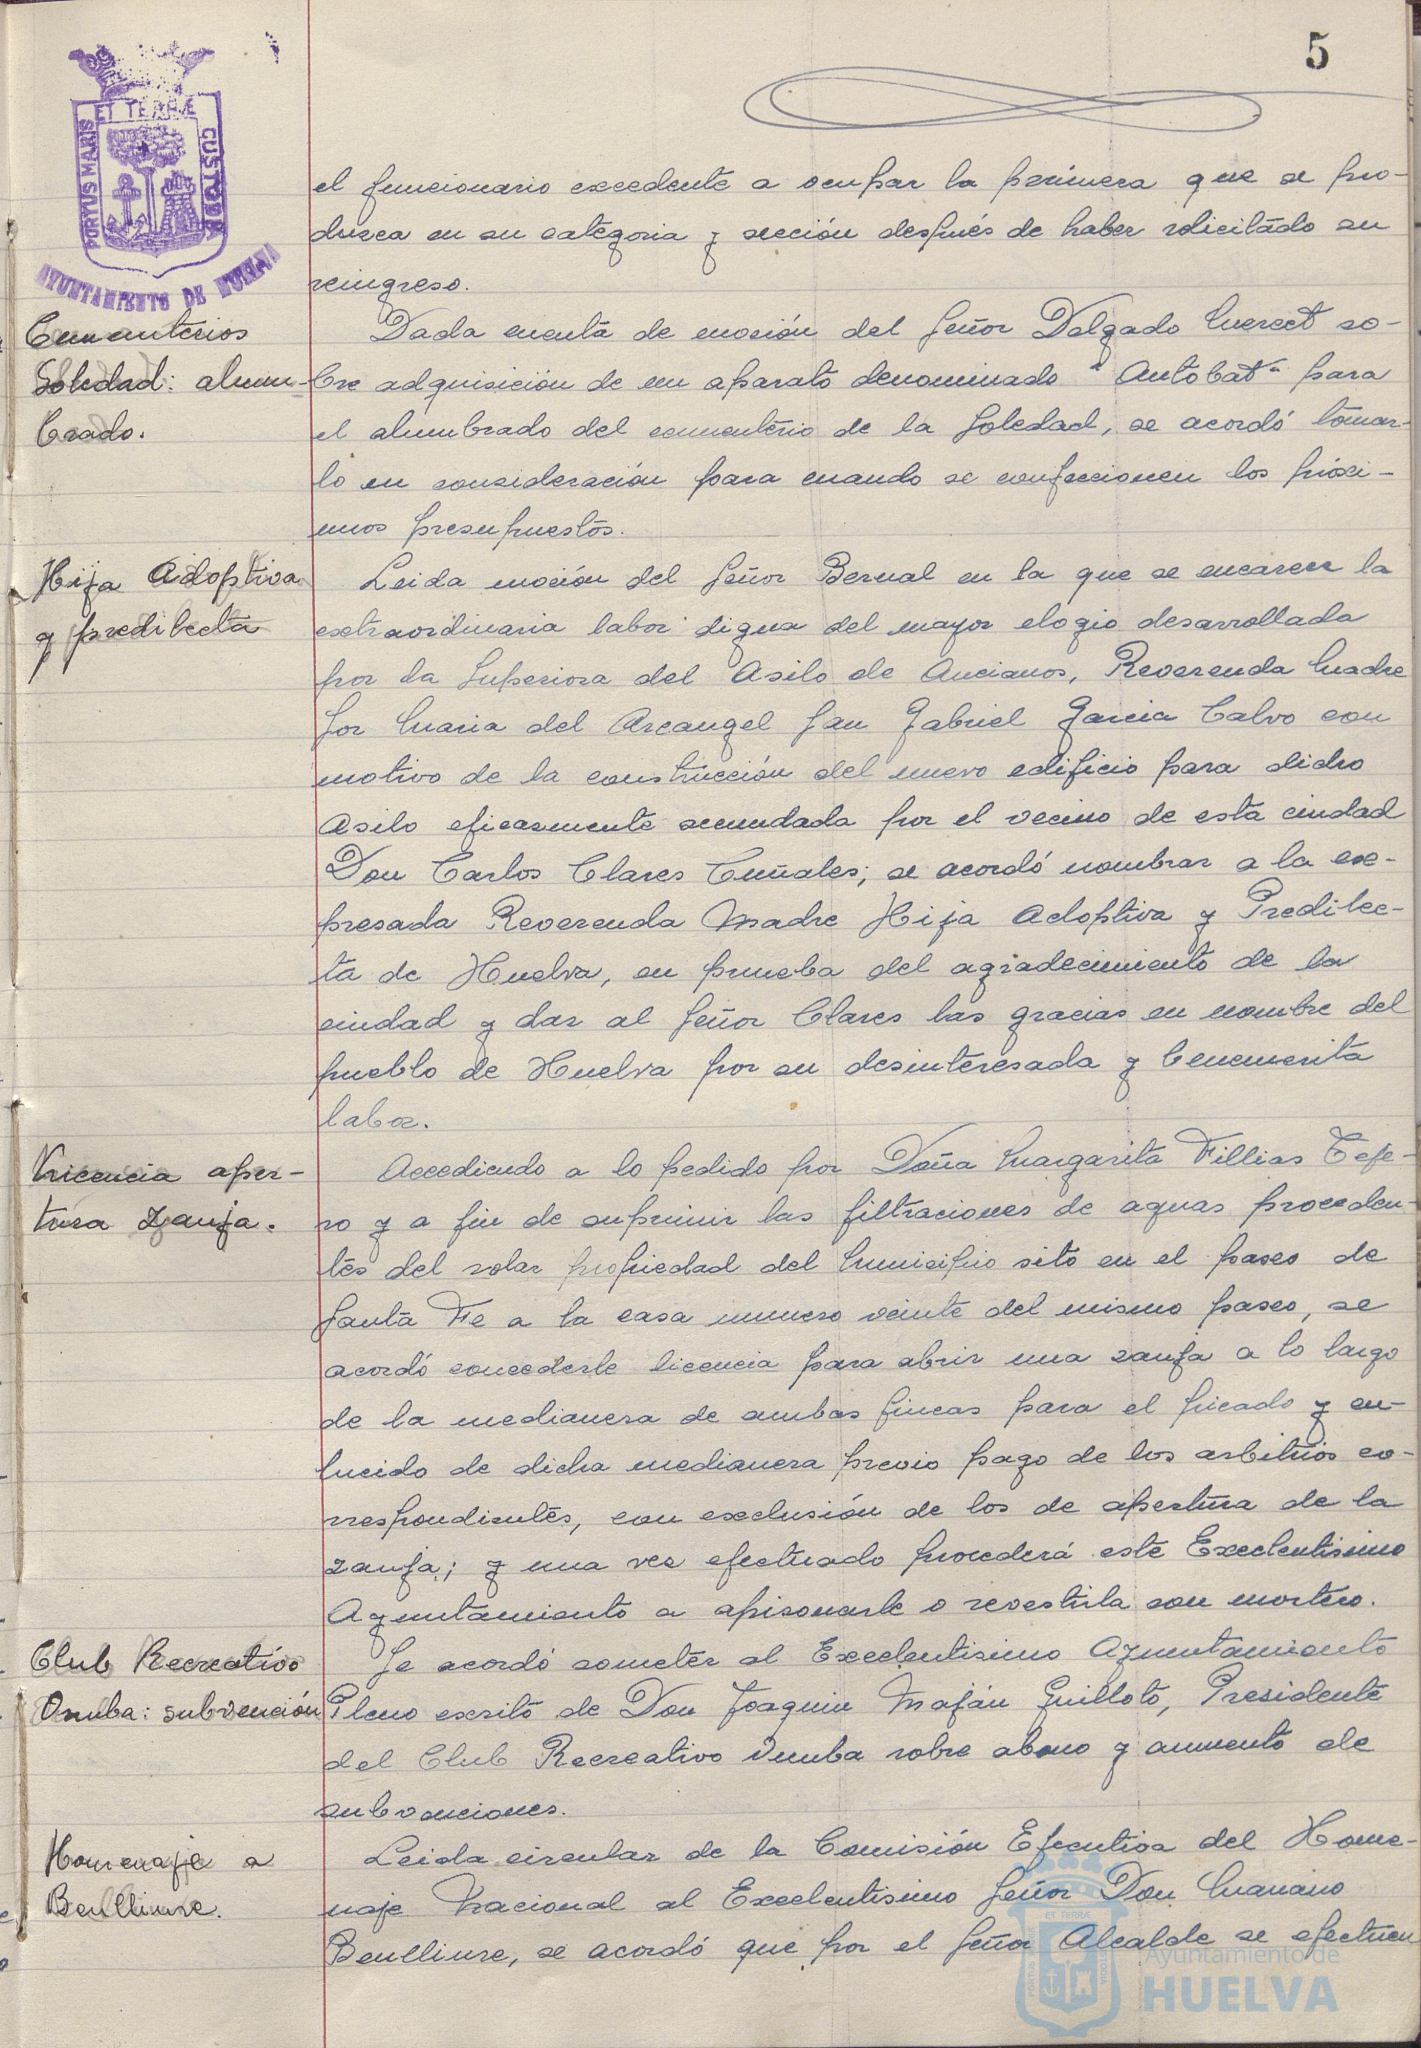 5
PORTUS MARIS ET TERRÆ CUSTODIA
AYUNTAMIENTO DE HUELVA
el funcionario excedente a ocupar la primera que se pro-
duzca en su categoria y sección después de haber solicitado su
reingreso.
Cementerios
Soledad: alum-
brado.
Dada cuenta de moción del Señor Delgado so-
bre adquisición de un aparato denominado "Autobat" para
el alumbrado del cementerio de la Soledad, se acordó tomar-
lo en consideración para cuando se confeccionen los próxi-
mos presupuestos.
Hija Adoptiva
y predilecta
Leida moción del Señor Bernal en la que se encarece la
extraordinaria labor digna del mayor elogio desarrollada
por la Superiora del Asilo de Ancianos, Reverenda Madre
Sor Maria del Arcangel San Gabriel Garcia Calvo con
motivo de la construcción del nuevo edificio para dicho
Asilo eficazmente secundada por el vecino de esta ciudad
Don Carlos Clares; se acordó nombrar a la ex-
presada Reverenda Madre Hija Adoptiva y Predilec-
ta de Huelva, en prueba del agradecimiento de la
ciudad y dar al Señor Clares las gracias en nombre del
pueblo de Huelva por su desinteresada y benemerita
labor.
Licencia aper-
tura zanja.
Accediendo a lo pedido por Doña Margarita Fillias Teje-
ro y a fin de suprimir las filtraciones de aguas proceden-
tes del solar propiedad del Municipio sito en el paseo de
Santa Fe a la casa numero veinte del mismo paseo, se
acordó concederle licencia para abrir una zanja a lo largo
de la medianera de ambas fincas para el picado y en-
lucido de dicha medianera previo pago de los arbitrios co-
rrespondientes, con exclusión de los de apertura de la
zanja; y una vez efectuado procederá este Excelentisimo
Ayuntamiento a apisonarle o revestirla con mortero.
Club Recreativo
Onuba: subvención
Se acordó someter al Excelentisimo Ayuntamiento
Pleno escrito de Don Joaquin Mafán Guilloto, Presidente
del Club Recreativo Onuba sobre abono y aumento de
subvenciones.
Homenaje a
Benlliure.
Leida circular de la Comisión Ejecutiva del Home-
naje Nacional al Excelentisimo Señor Don Mariano
Benlliure, se acordó que por el Señor Alcalde se efectuen
Ayuntamiento de
HUELVA